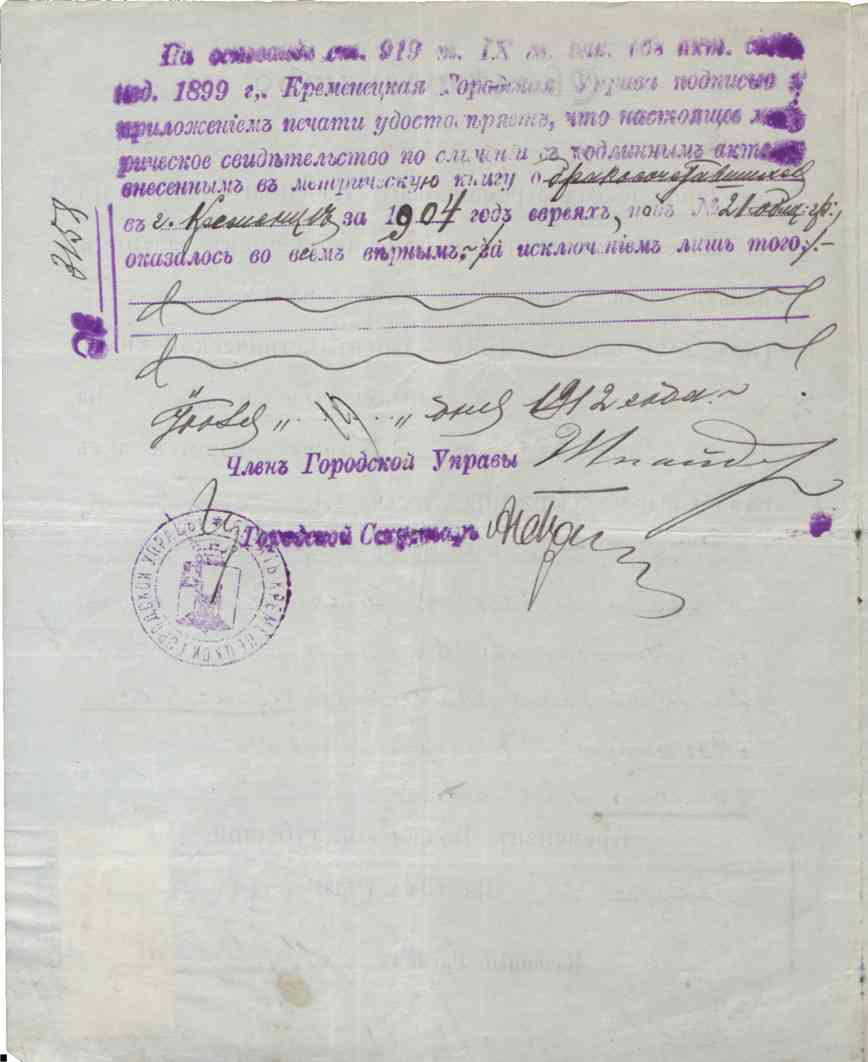 На основанiи ст. 919 т. IX св. зак. объ акт. сост.
изд. 1899 г., Кременецкая Городская Управа подписью и
приложенiемъ печати удостовѣряетъ, что настоящее мет-
рическое свидѣтельство по сличенiи съ подлиннымъ актомъ
внесеннымъ въ метрическую книгу о бракосочетавшихся
въ г. Кременцѣ за 1904 годъ евреяхъ, подъ № 21 общ: гр:,
оказалось во всемъ вѣрнымъ, за исключенiемъ лишь того,
1912 года.
Членъ Городской Управы
Городской Секретарь
ПЕЧАТЬ КРЕМЕНЕЦКОЙ ГОРОДСКОЙ УПРАВЫ